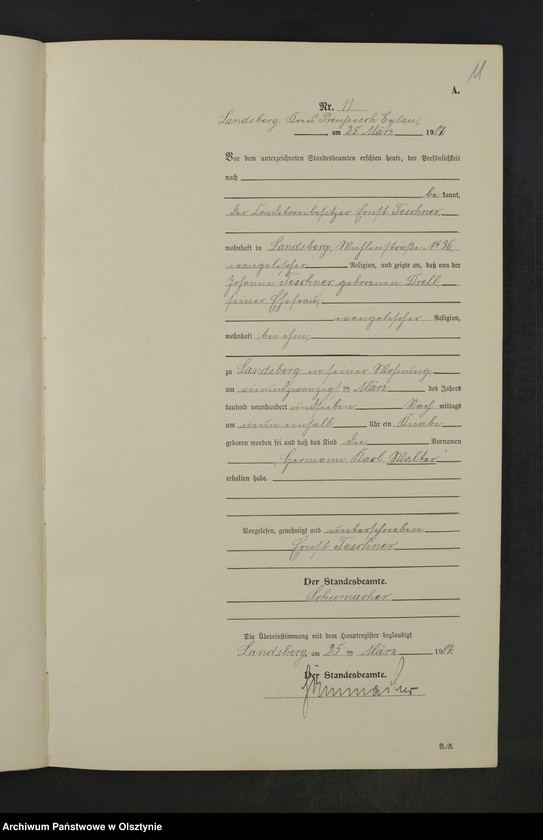 11
A.
Nr. 11
Landsberg Kreis Preussisch Eylau,
am 25. März 1907.
Vor dem unterzeichneten Standesbeamten erschien heute, der Persönlichkeit
nach
be kannt,
der Ernst Teschner,
wohnhaft in Landsberg, Mühlenstraße No 36,
evangelischer Religion, und zeigte an, daß von der
Johanne Teschner geborenen Drell,
seiner Ehefrau,
evangelischer Religion,
wohnhaft bei ihm,
zu Landsberg in seiner Wohnung,
am vierundzwanzigsten März des Jahres
tausend neunhundert und sieben Nach mittags
um neun einhalb Uhr ein Knabe
geboren worden sei und daß das Kind die Vornamen
„Hermann Karl Walter“
erhalten habe.
Vorgelesen, genehmigt und unterschrieben
Ernst Teschner
Der Standesbeamte.
Schumacher
Die Übereinstimmung mit dem Hauptregister beglaubigt
Landsberg, am 25 ten März 1907.
Der Standesbeamte.
Schumacher
A.-R.
Archiwum Państwowe w Olsztynie